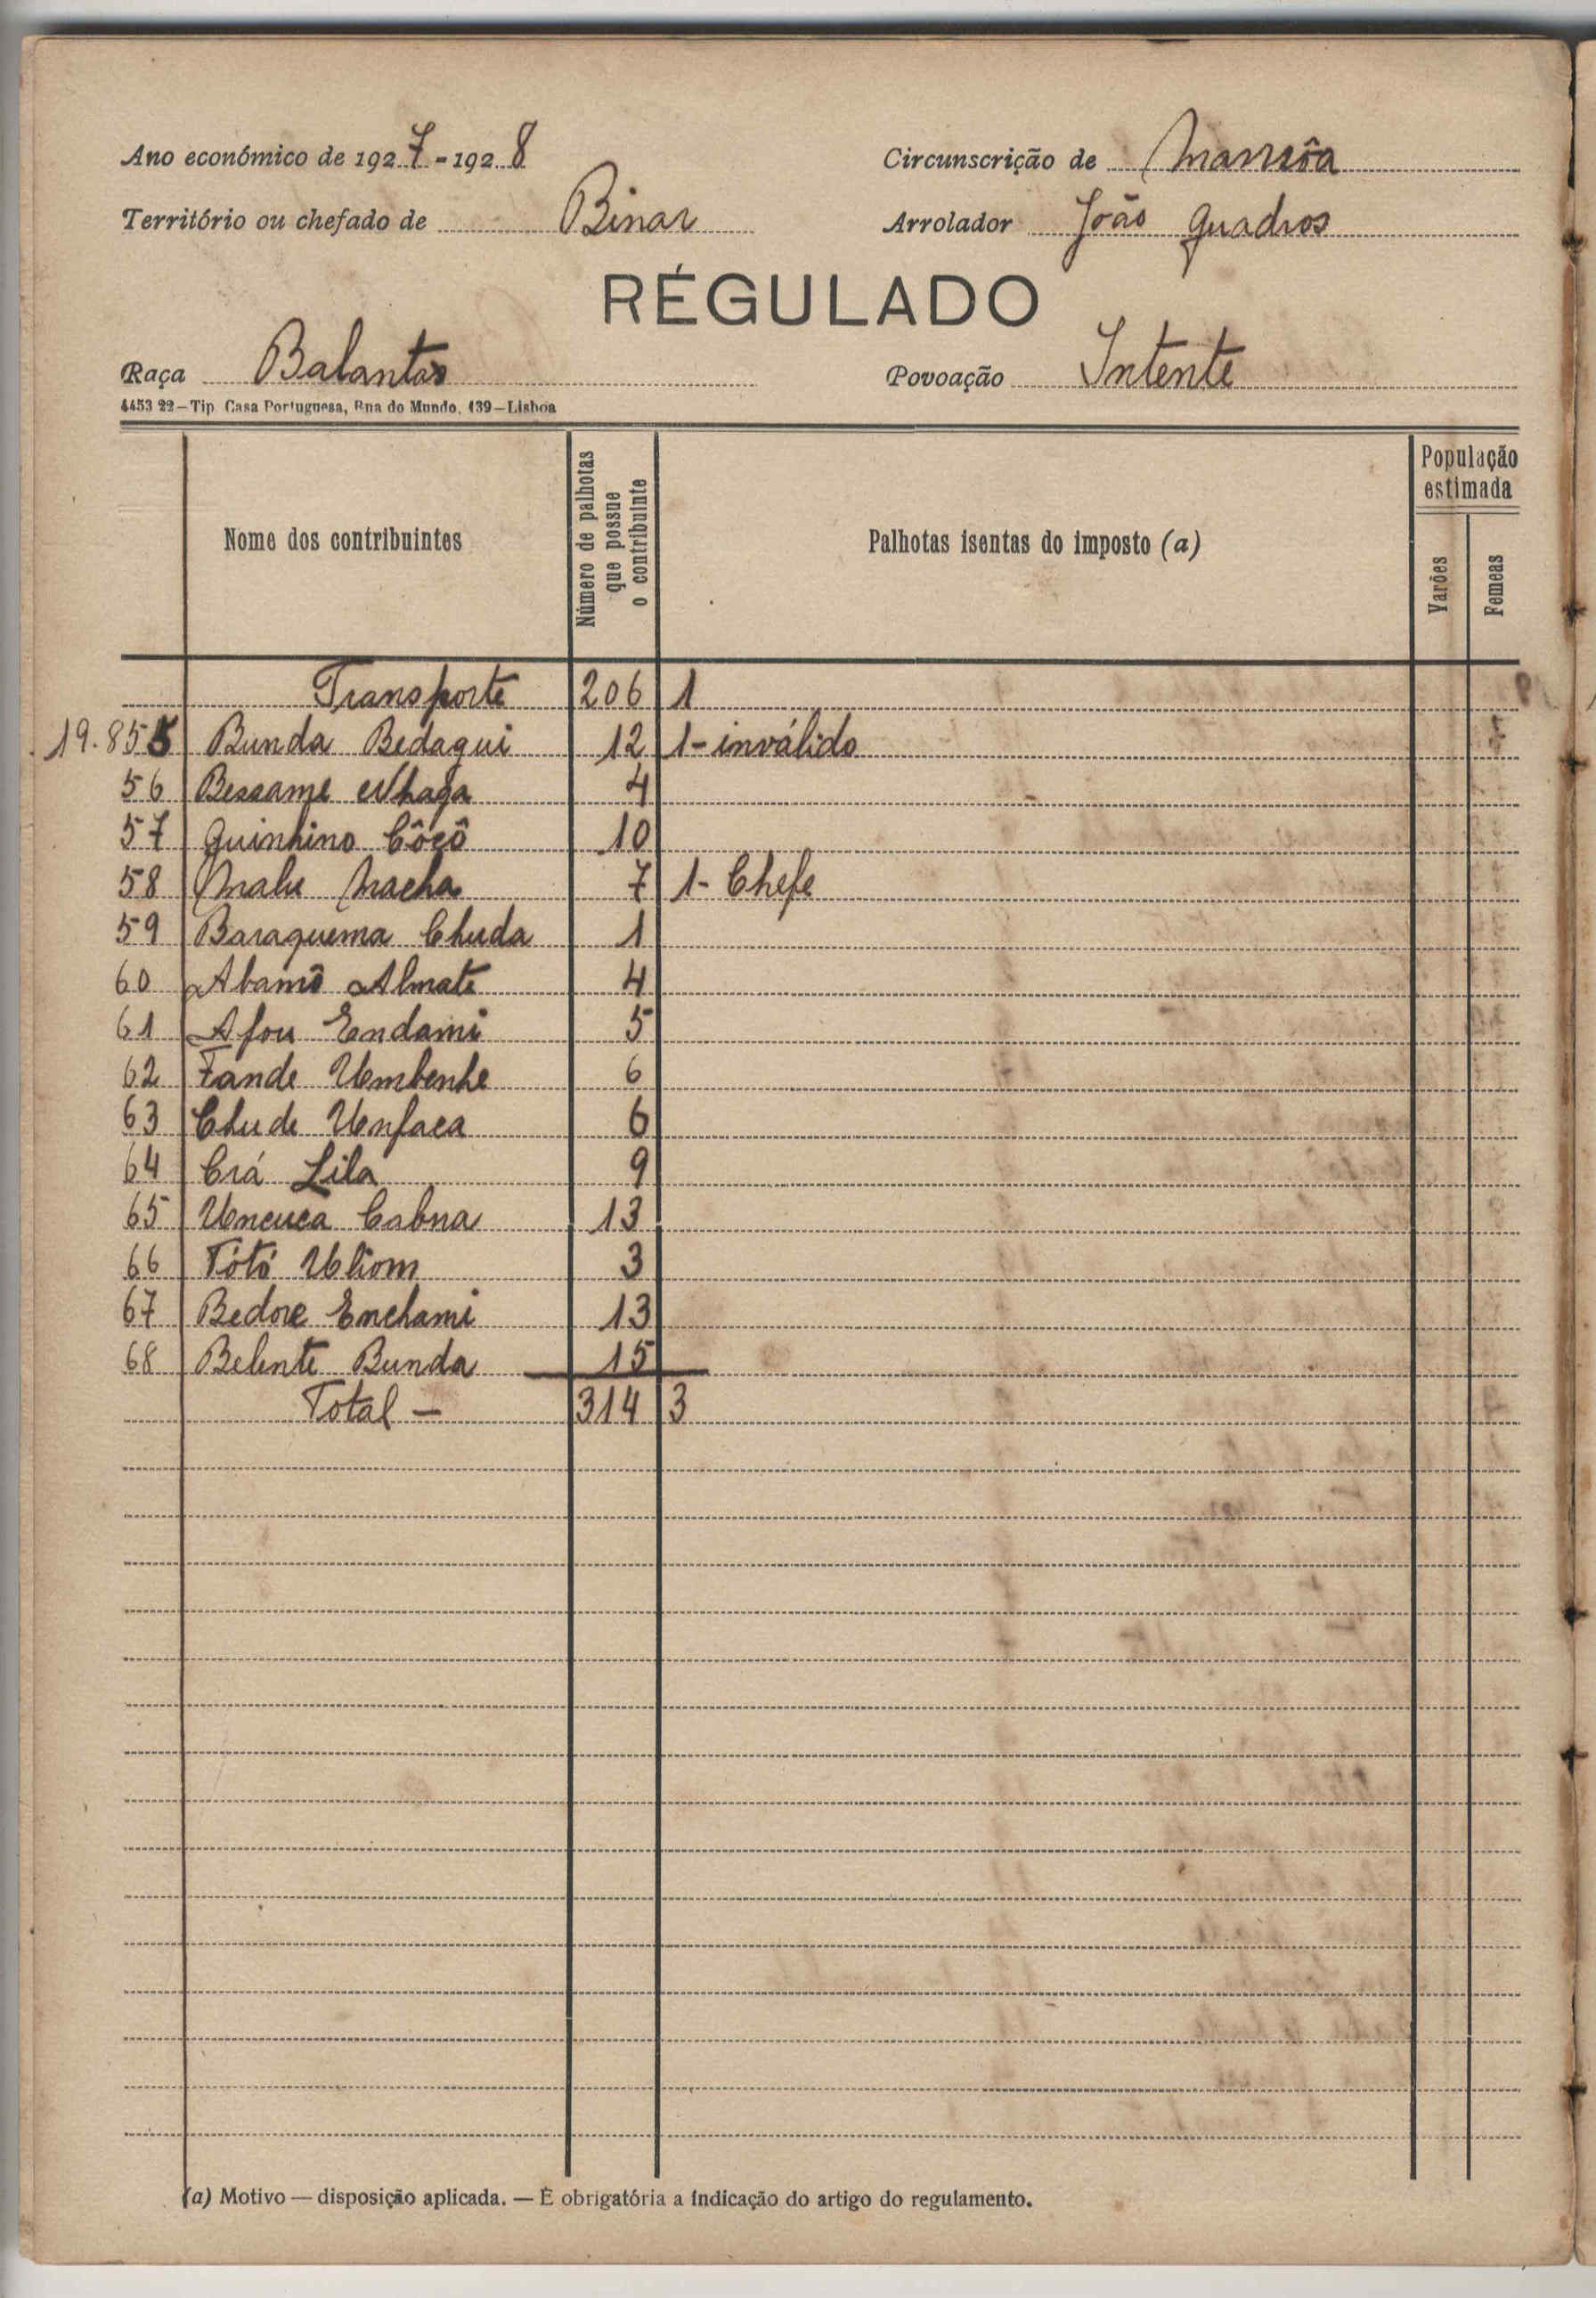 Ano económico de 1927-1928
Circunscrição de Mansôa
Território ou chefado de Binar
Arrolador João Quadros
RÉGULADO
Raça Balantas
Povoação Intente
4453 22—Tip Casa Portuguesa, Rua do Mundo, 139—Lisboa
Nome dos contribuintes
Número de palhotas que possue o contribuinte
Palhotas isentas do imposto (a)
População estimada
Varões
Femeas
Transporte 206 1
19.855 Bunda Bedaqui 12 1-inválido
56 Bessame Nhaga 4
57 Quinhino Côcô 10
58 Malu Nacha 7 1-Chefe
59 Baraquema Chuda 1
60 Abamô Almate 4
61 Afou Endami 5
62 Fande Umbenhe 6
63 Chude Unfaca 6
64 Crá Lila 9
65 Uncuca Cabna 13
66 Tótó Uliom 3
67 Bedore Enchami 13
68 Belente Bunda 15
Total — 314 3
(a) Motivo — disposição aplicada. — É obrigatória a indicação do artigo do regulamento.